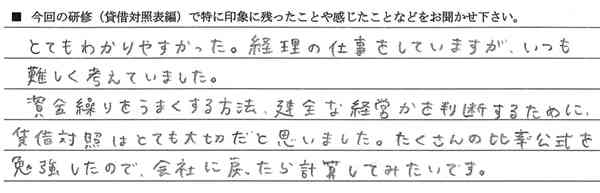 ■ 今回の研修（貸借対照表編）で特に印象に残ったことや感じたことなどをお聞かせ下さい。
とてもわかりやすかった。経理の仕事をしていますが、いつも
難しく考えていました。
資金繰りをうまくする方法、健全な経営かを判断するために、
貸借対照はとても大切だと思いました。たくさんの比率公式を
勉強したので、会社に戻ったら計算してみたいです。